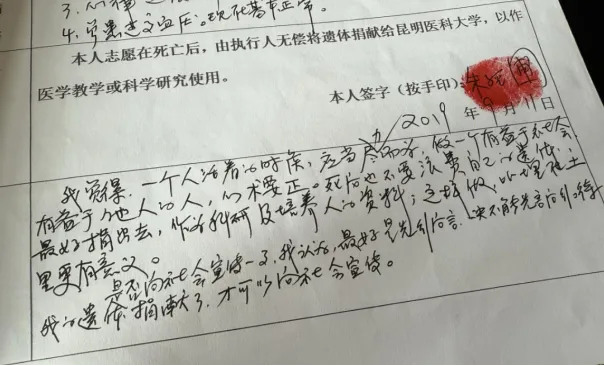 4. 曾患过高血压。现在基本正常。
本人志愿在死亡后，由执行人无偿将遗体捐献给昆明医科大学，以作
医学教学或科学研究使用。
本人签字（按手印）：
2019 年 9 月 11 日
我觉得，一个人活着的时候，应当尽而为，做一个有益于社会、
有益于他人的人，心术要正。死后也不要浪费自己的遗体，
最好捐出去，作为科研及培养人的资料；这样做，比埋在土
里更有意义。
是否向社会宣传一下，我认为，最好是先别宣言，决不能先言而引
我的遗体捐献了，才可以向社会宣传。